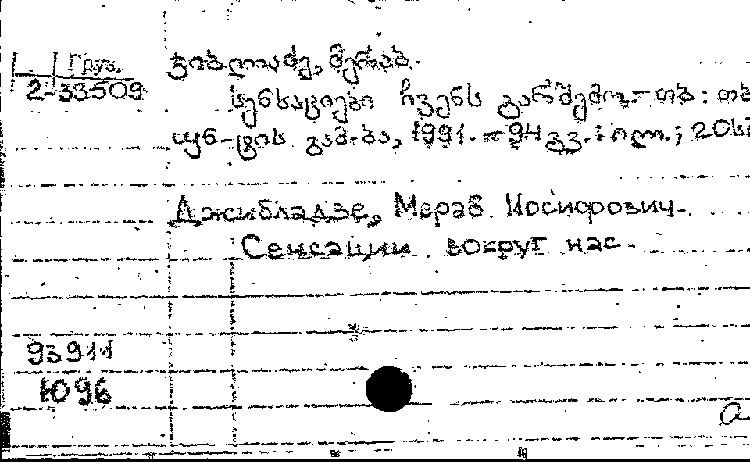 Груз.
2-33509
ჯიბლაძე, მერაბ.
სენსაციები ჩვენს გარშემო. - თბ: თბ
უნ-ტის გამ-ბა, 1991. - 94 გვ.: ილ.; 20სმ
Джибладзе, Мераб Иосифович.
Сенсации вокруг нас.
93911
Ю96
а